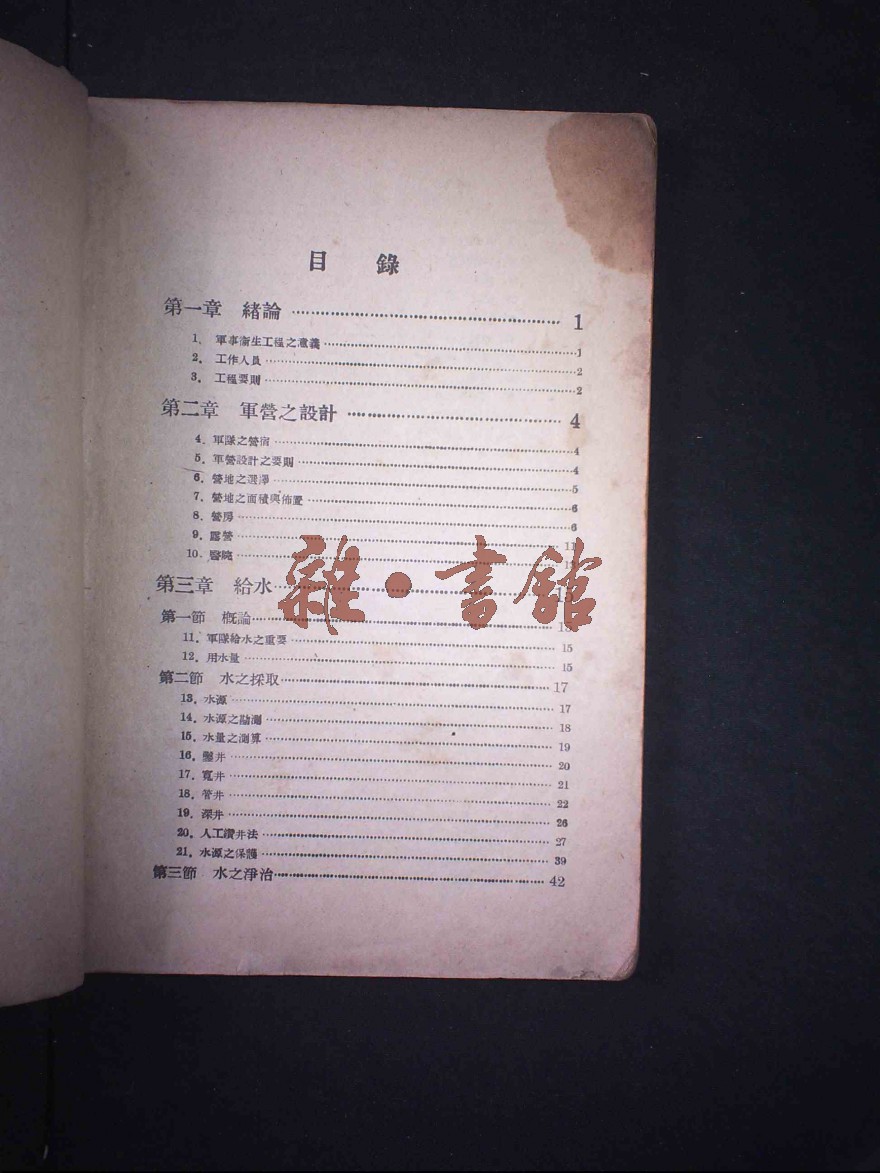 目錄
第一章 緒論 1
1. 軍事衞生工程之意義 1
2. 工作人員 2
3. 工程要則 2
第二章 軍營之設計 4
4. 軍隊之營宿 4
5. 軍營設計之要則 4
6. 營地之選擇 5
7. 營地之面積與佈置 6
8. 營房 6
9. 露營 11
10. 醫院
第三章 給水
第一節 概論
11. 軍隊給水之重要 15
12. 用水量 15
第二節 水之採取 17
13. 水源 17
14. 水源之勘測 18
15. 水量之測算 19
16. 鑿井 20
17. 寬井 21
18. 管井 22
19. 深井 26
20. 人工鑽井法 27
21. 水源之保護 39
第三節 水之淨治 42
雜·書館